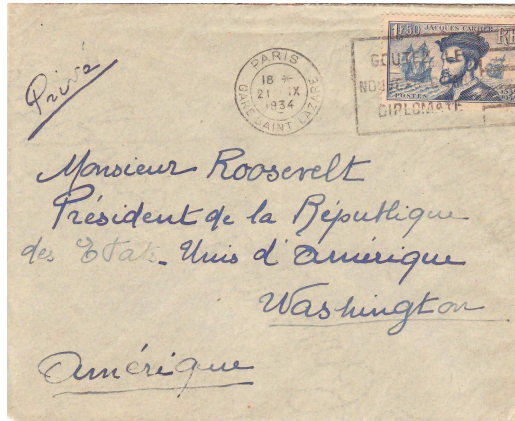 Privé
PARIS
18 *
21 IX
1934
GARE SAINT-LAZARE
GOUTEZ LE
DIPLOMATE
1f50 JACQUES CARTIER RF
POSTES
Monsieur Roosevelt
Président de la République
des Etats-Unis d'Amérique
Washington
Amérique